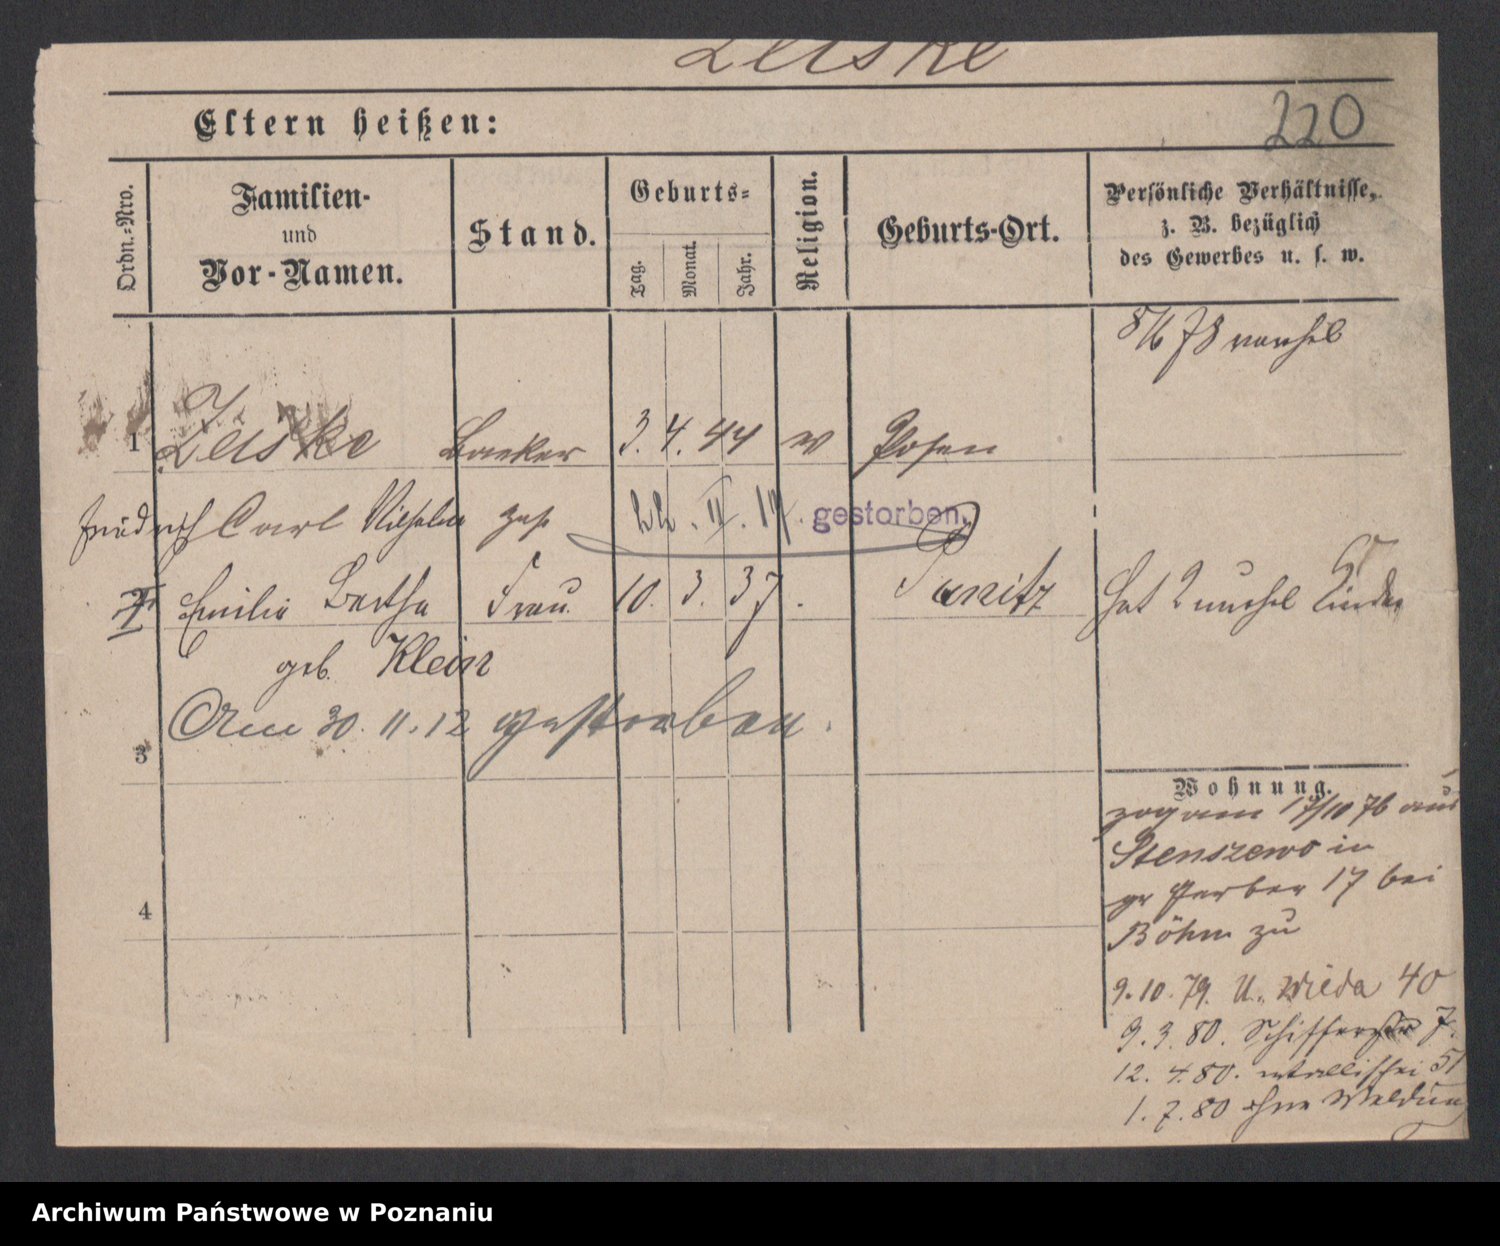 Zeiske
220
Eltern heißen:
Ordn.-Nro.
Familien-
und
Vor-Namen.
Stand.
Geburts-
Tag.
Monat.
Jahr.
Religion.
Geburts-Ort.
Persönliche Verhältnisse,
z. B. bezüglich
des Gewerbes u. s. w.
8/6 78
1 Zeiske 3. 4. 44 Posen
Friedrich Carl Wilhelm gestorben.
Emilie Bertha Frau. 10. 3. 37. Hat 2 unehel Kinder
geb. Klein
Am 30. 11. 12 gestorben.
3
Wohnung.
zog am 17/10 76 aus
Stenszewo in
gr Gerber 17 bei
Böhm zu
4
9. 10. 79. U. Wilda 40
9. 3. 80. Schifferstr 7.
12. 4. 80. Wallischei 51
1. 7. 80 ohne Meldung
Archiwum Państwowe w Poznaniu